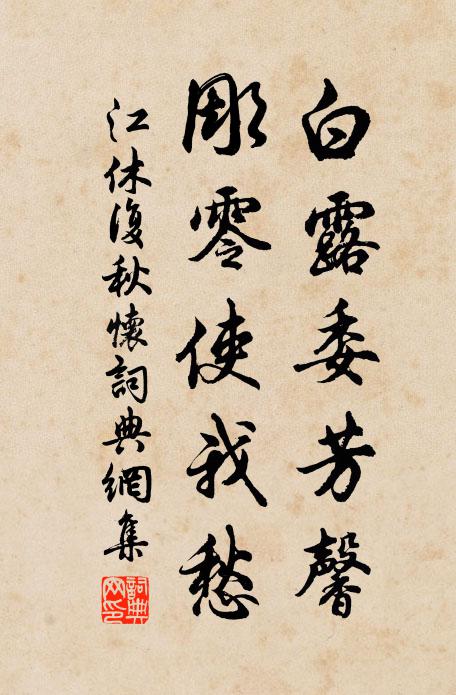 白露委芳馨
彫零使我愁
江休復秋懷詞典網集
詞典
网印